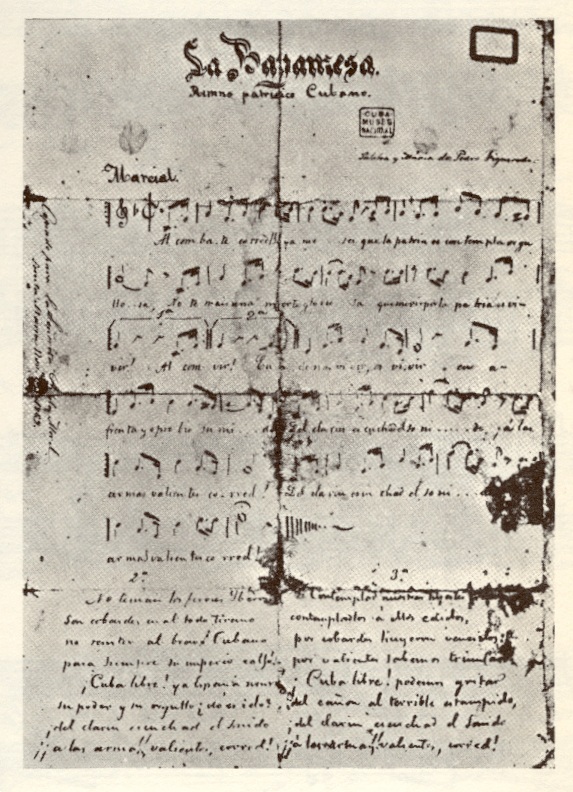 La Bayamesa.
Himno patriótico Cubano.
CUBA
MUSEO
NACIONAL
Letra y Música de Pedro Figueredo.
Marcial.
Al comba.te corred B ya me .. se que la patria os contempla orgu
llo.sa, No te mais una muerte glorio .. sa que morir por la patria es vi
1ª 2ª
vir! Al com vir! En cadenas vivir, es vivir en a-
frenta y oprobio sumi .... do Del clarin escuchad el soni .... do, ¡a las
armas valientes co..rred! Del clarin escuchad el soni ....
armas valientes co rred!
2ª
No temais los feroces Iberos
Son cobardes cual todo Tirano
no resistir al bravo Cubano
para siempre su imperio cayó.
¡Cuba libre! ya España murió
su poder y su orgullo ¿do es ido?
¡del clarin escuchad el Sonido
¡¡a las armas!! valientes, corred!
3ª
Contemplad nuestras
contemplarlos á ellos caidos,
por cobardes huyeron vencidos:
por valientes sabemos triunfar
¡Cuba libre! podemos gritar
del cañon al terrible estampido,
¡del clarin escuchad el Sonido
¡á las armas!! valientes, corred!